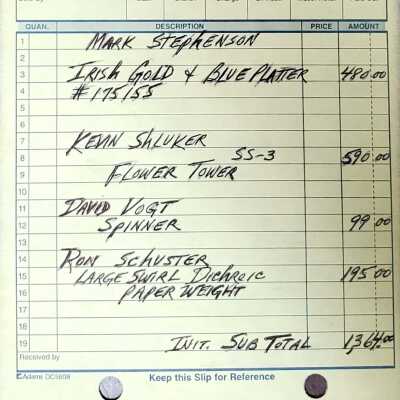 QUAN. DESCRIPTION PRICE AMOUNT
1 MARK STEPHENSON
2
3 IRISH GOLD & BLUE PLATTER 480.00
4 #175/55
5
6
7 KEVIN SHLUKER
8 SS-3 590.00
9 FLOWER TOWER
10
11 DAVID VOGT
12 SPINNER 99.00
13
14 RON SCHUSTER
15 LARGE SWIRL DICHROIC 195.00
16 PAPER WEIGHT
17
18
19 INIT. SUB TOTAL 1,364.00
Received by
Adams DC5808
Keep this Slip for Reference